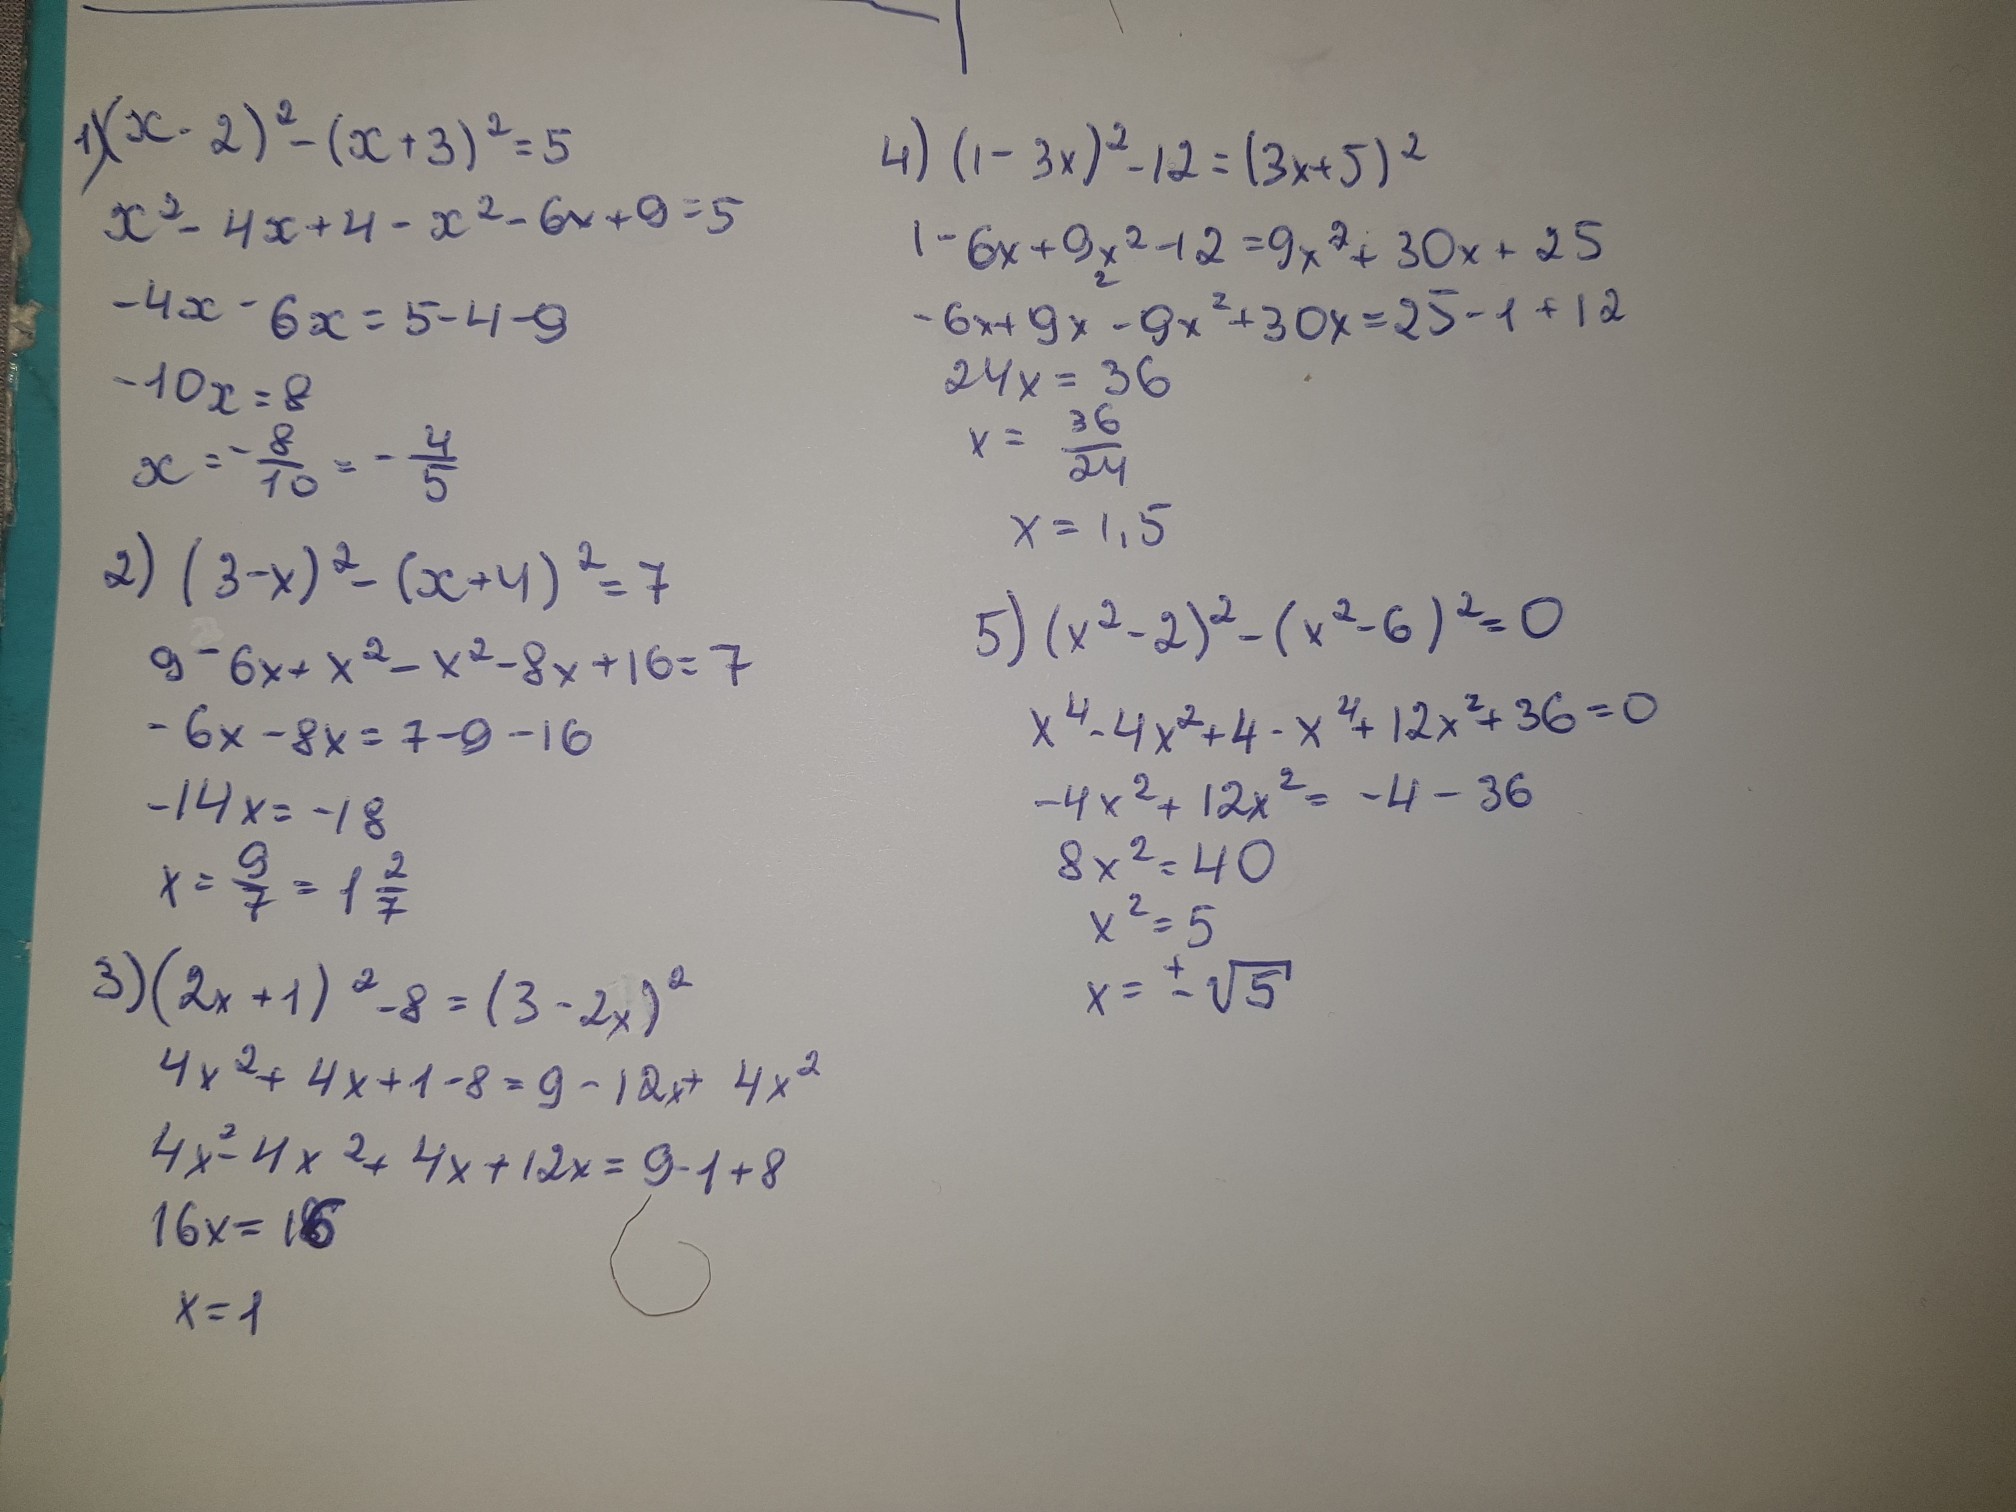 1) (x - 2)² - (x + 3)² = 5
x² - 4x + 4 - x² - 6x + 9 = 5
-4x - 6x = 5 - 4 - 9
-10x = 8
x = -8/10 = -4/5
2) (3 - x)² - (x + 4)² = 7
9 - 6x + x² - x² - 8x + 16 = 7
-6x - 8x = 7 - 9 - 16
-14x = -18
x = 9/7 = 1 2/7
3) (2x + 1)² - 8 = (3 - 2x)²
4x² + 4x + 1 - 8 = 9 - 12x + 4x²
4x² - 4x² + 4x + 12x = 9 - 1 + 8
16x = 16
x = 1
4) (1 - 3x)² - 12 = (3x + 5)²
1 - 6x + 9x² - 12 = 9x² + 30x + 25
-6x + 9x² - 9x² + 30x = 25 - 1 + 12
24x = 36
x = 36/24
x = 1,5
5) (x² - 2)² - (x² - 6)² = 0
x⁴ - 4x² + 4 - x⁴ + 12x² + 36 = 0
-4x² + 12x² = -4 - 36
8x² = 40
x² = 5
x = ±√5